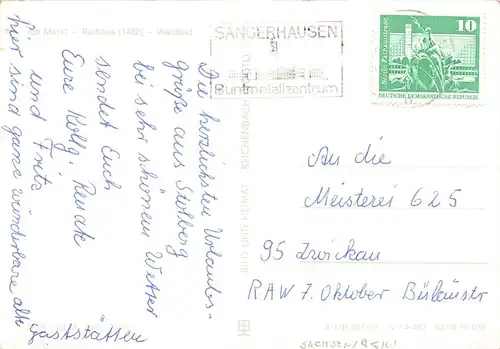 Am Markt - Rathaus (1482) - Waldbad
SANGERHAUSEN
Buntmetallzentrum
10
DEUTSCHE DEMOKRATISCHE REPUBLIK
Die herzlichsten Urlaubs-
grüße aus Stolberg
bei sehr schönem Wetter
sendet Euch
Eure Kollg. Renate
und Fritz
hier sind ganz wunderbare alte
Gaststätten
BILD UND HEIMAT REICHENBACH
An die
Meisterei 625
95 Zwickau
RAW 7. Oktober